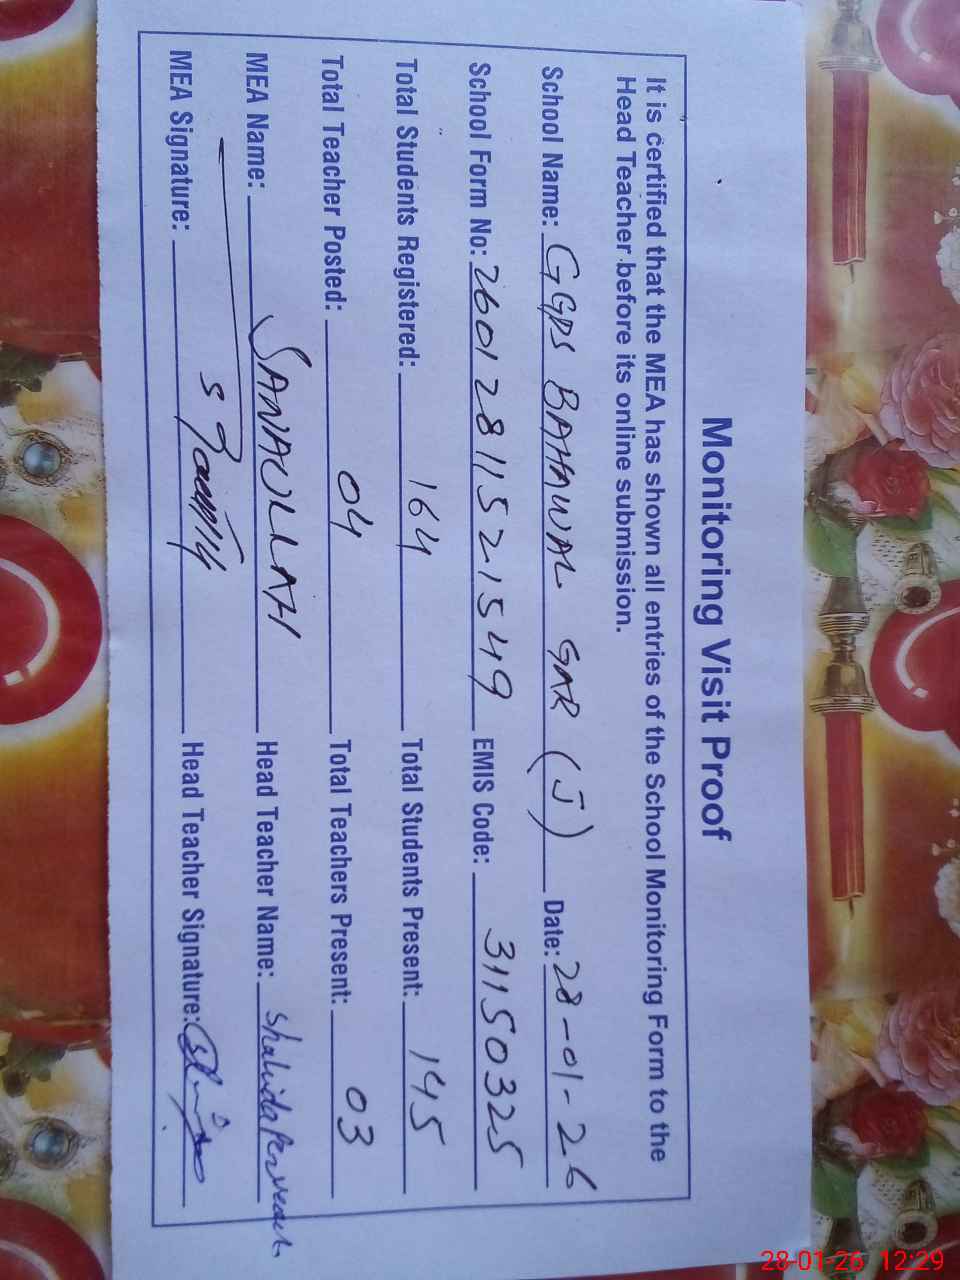 Monitoring Visit Proof
It is certified that the MEA has shown all entries of the School Monitoring Form to the
Head Teacher before its online submission.
School Name: GGPS BAHAWAL GAR (J) Date: 28-01-26
School Form No: 26012811521549 EMIS Code: 31150325
Total Students Registered: 164 Total Students Present: 145
Total Teacher Posted: 04 Total Teachers Present: 03
MEA Name: SANAULLAH Head Teacher Name: Shahida Perveen
MEA Signature: Head Teacher Signature:
28-01-26 12:29